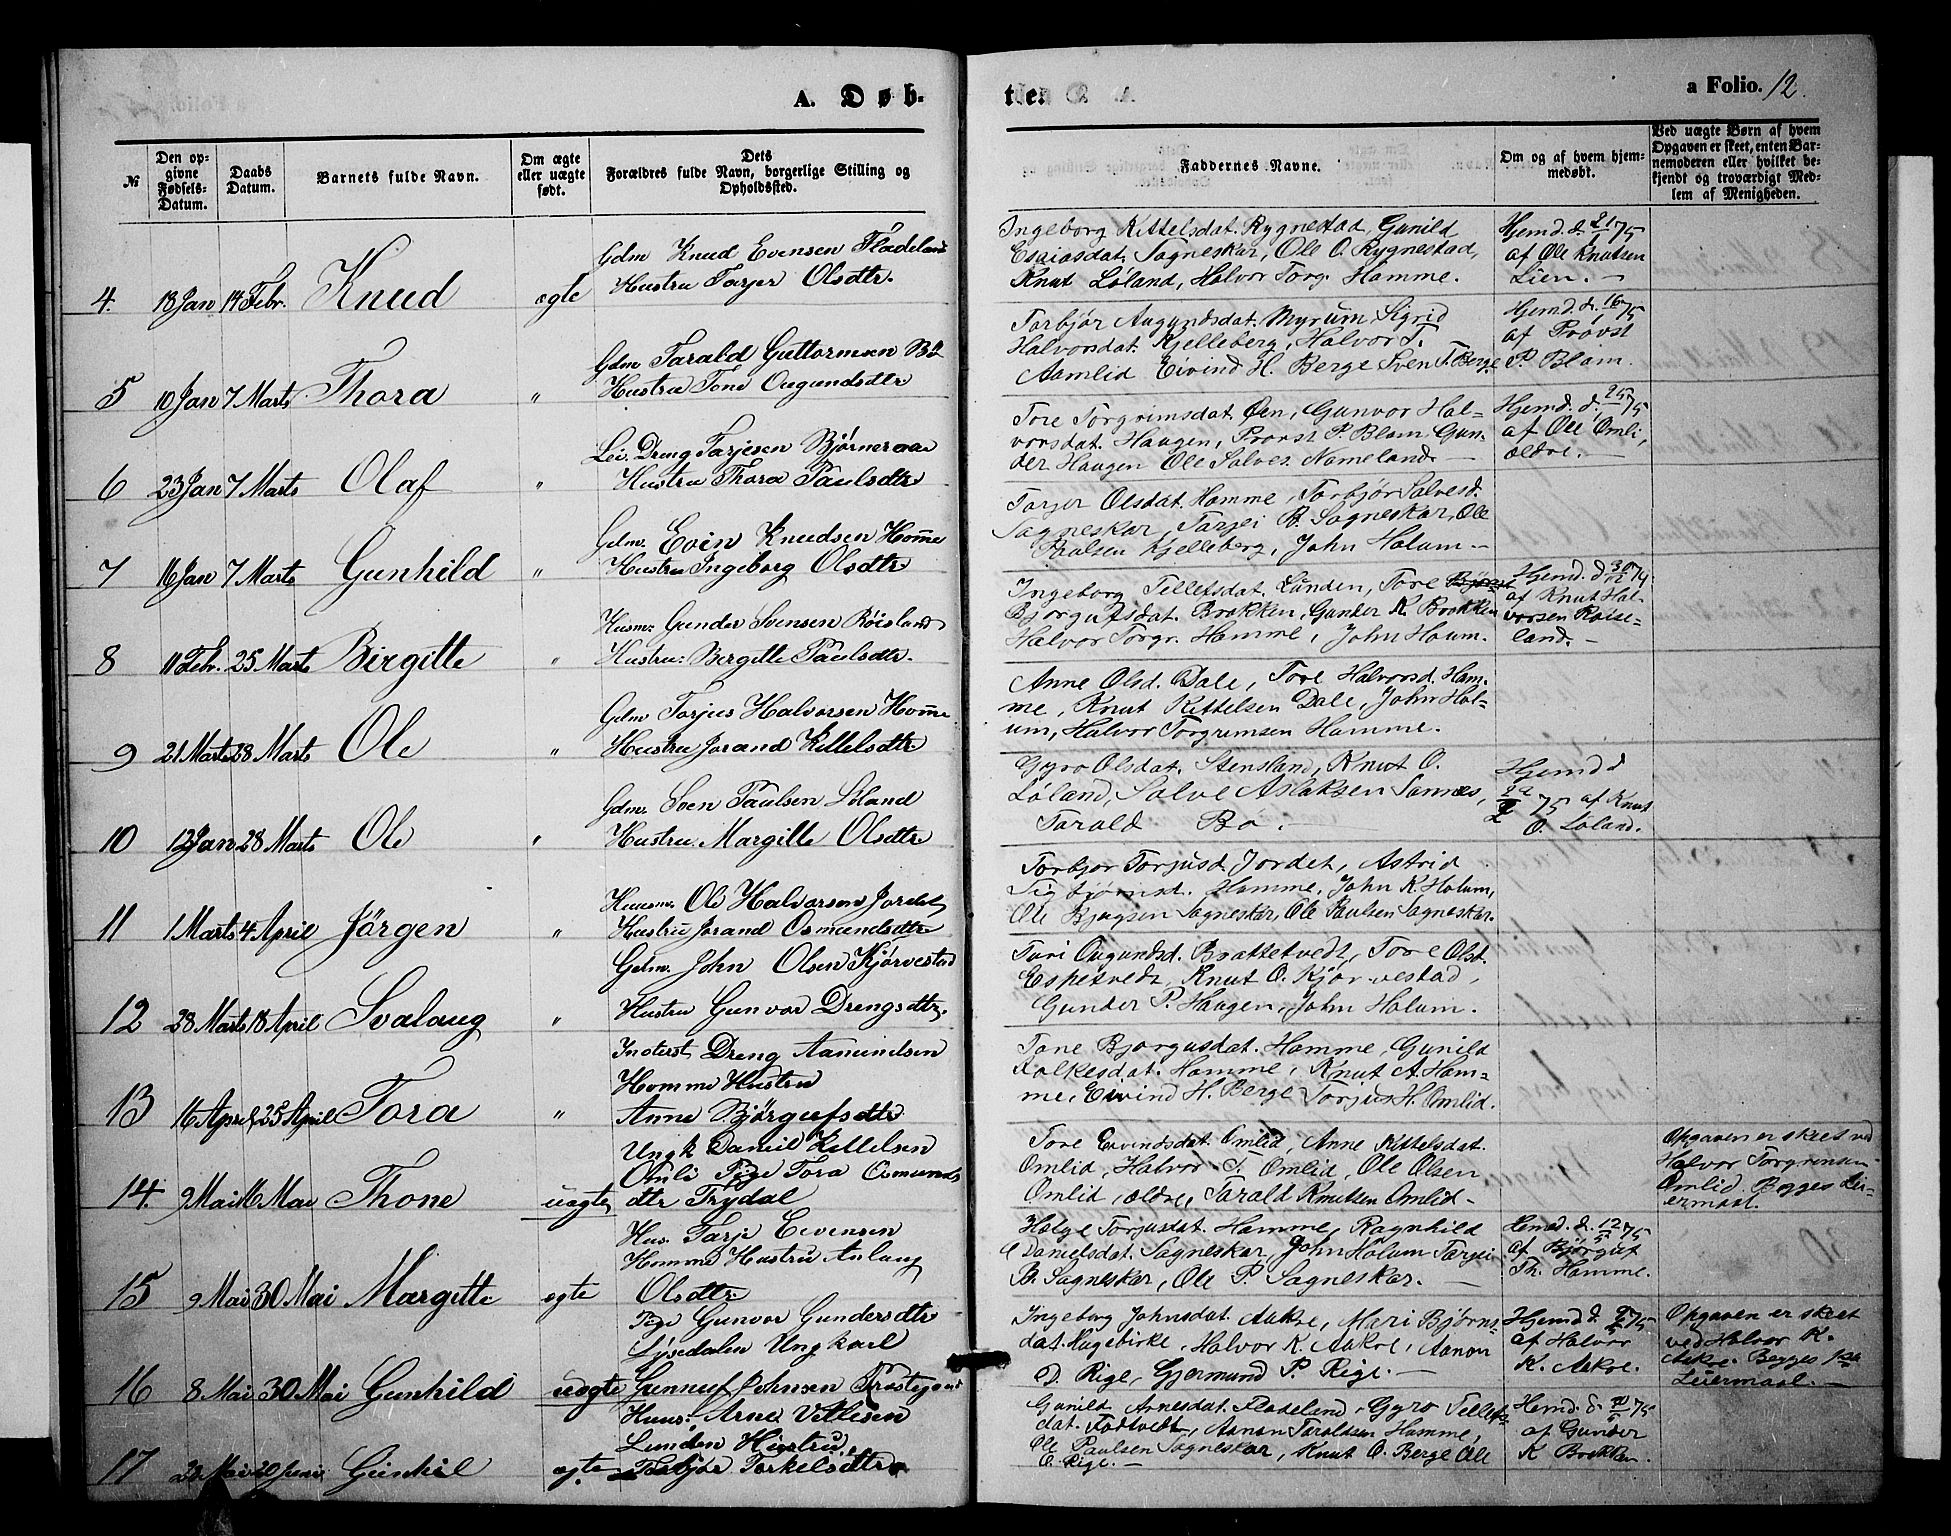 A. Døb-
te.
a Folio. 12.
№
Den op-
givne
Fødsels-
Datum.
Daabs
Datum.
Barnets fulde Navn.
Om ægte
eller uægte
født.
Dets
Forældres fulde Navn, borgerlige Stilling og
Opholdssted.
Faddernes Navne.
Om og af hvem hjem-
medøbt.
Ved uægte Børn af hvem
Opgaven er skeet, enten Bar-
nemoderen eller hvilket be-
kjendt og troværdigt Med-
lem af Menigheden.
4. 18 Jan 14 Febr. Knud ægte
Gdm Knud Evensen Fladeland
Hustru Tarjer Olsdtr.
Ingeborg Kittelsdat. Rygnestad, Gunild
Esaiasdat. Sagneskar, Ole O. Rygnestad,
Knut Løland, Halvor Torg. Hamme.
Hjemd. d. 21/1 75
af Ole Knutsen
Lien. —
5 10 Jan 7 Marts Thora "
Gdm Tarald Guttormsen Bö
Hustru Tone Ougundsdtr
Torbjør Augundsdat. Myrum, Sigrid
Halvorsdat. Kjelleberg, Halvor T.
Aamlid Eivind H. Berge Sven T. Berge
Hjemd. d. 16/1 75
af Provst
P. Blom.
6 23 Jan 7 Marts Olaf "
Lei. Dreng Tarjesen Björneraa
Hustru Thora Paulsdtr
Tore Torgrimsdat. Øen, Gunvor Hal=
vorsdat. Haugen, Provst P. Blom. Gun-
der Haugen Ole Salves. Nomeland. —
Hjemd. d. 25/1 75
af Ole Omli,
ældre. —
7 16 Jan 7 Marts Gunhild "
Gdm. Evin Knudsen Homme
Hustru Ingeborg Olsdtr
Tarjer Olsdat. Homme, Torbjør Salvesd.
Sagneskar, Tarjei B. Sagneskar, Ole
Paulsen Kjelleberg, John Holum —
8 11 Febr. 25 Marts Birgitte "
Husm: Gunder Svensen Röisland
Hustru: Bergitte Paulsdtr.
Ingeborg Tellefsdat. Lunden, Tore
Bjorgufsdat. Brokken, Gunder K. Brokken
Halvor Torgr. Hamme, John Houm.
Hjemd. d 30/12 74
af Knut Hal-
vorsen Röise-
land. —
9 21 Marts 28 Marts Ole "
Gdm Torjus Halvorsen Homme
Hustru Jorand Kittelsdtr
Anne Olsd. Dale, Tore Halvorsd. Ham-
me, Knut Kittelsen Dale, John Hol-
um, Halvor Torgrimsen Hamme.
10 12 Jan 28 Marts Ole "
Gdm. Sven Paulsen Löland
Hustru. Margitte Olsdtr
Gyro Olsdat. Stensland, Knut O.
Løland, Salve Aslaksen Sannes,
Tarald Bö. —
Hjemd d
75 af Knut
O. Løland.
11 1 Marts 4 April Jörgen "
Huusm. Ole Halvorsen Jordet
Hustru Jorand Osmundsdtr
Torbjor Torjusd. Jordet, Astrid
Sigbjørnsd. Hamme, John K. Holum,
Ole Bjugsen Sagneskar, Ole Paulsen Sagneskar.
12 28 Marts 18 April Svalaug "
Gdm. John Olsen Kjörvestad
Hustru Gunvor Drengsdtr.
Turi Ougundsd. Brottetvedt, Tore Olsd.
Espetvedt, Knut O. Kjør-vestad,
Gunder P. Haugen, John Holum.
13 16 April 25 April Tora "
Inderst Dreng Aamundsen
Homme Hustru
Anne Björgufsdtr
Tone Bjorgusdat. Hamme, Gunild
Folkesdat. Hamme, Knut A. Ham=
me, Eivind H. Berge Torjus H. Omlid.
14. 9 Mai 16 Mai Thone uægte
Ungk Daniel Kittelsen
Omli Pige Tora Osmunds
dtr Frydal
Tore Eivindsdat. Omlid, Anne Kittelsdat.
Omlid, Halvor T. Omlid, Ole Olsen
Omlid, ældre, Tarald Knutsen Omlid -
Opgaven er skeet ved
Halvor Torgrimsen
Omlid Begges Lei-
ermaal.
15 9 Mai 30 Mai Margitte ægte
Hus. Tarje Evensen
Homme Hustru Anlaug
Olsdtr
Helge Torjusdat. Hamme, Ragnhild
Danielsdat. Sagneskar, John Holum Tarjei
B. Sagneskar, Ole P. Sagneskar. —
Hemd. d. 12/5 75
af Bjørguf
Th. Hamme.
16 8 Mai 30 Mai Gunhild uægte
Pige Gunvor Gundersdtr
Lysedalen Ungkarl
Gunneuf Johnsen
Ingeborg Johnsdat. Aakre, Mari Bjørns=
dat. Hagebirke, Halvor K. Aakre, Aanon
D. Rige, Gjermund P. Rige. —
Hjemd d 75
af Halvor
K. Aakre.
Opgaven er skeet
ved Halvor K.
Aakre. Begges 1ste
Leiermaal. —
17 20 Juni Gunhil ægte
Huus: Arne Vetlesen
Lunden Hustru
Torbjör Torkelsdtr
Gunild Arnesdat. Fladeland. Gyro Tellefs-
dat. Tadtvedt, Aanon Taraldsen Hamme,
Ole Paulsen Sagneskar, Knut O. Berge Ole
O. Rige. —
Hemd. d 75
af Gunder
K Brokken.